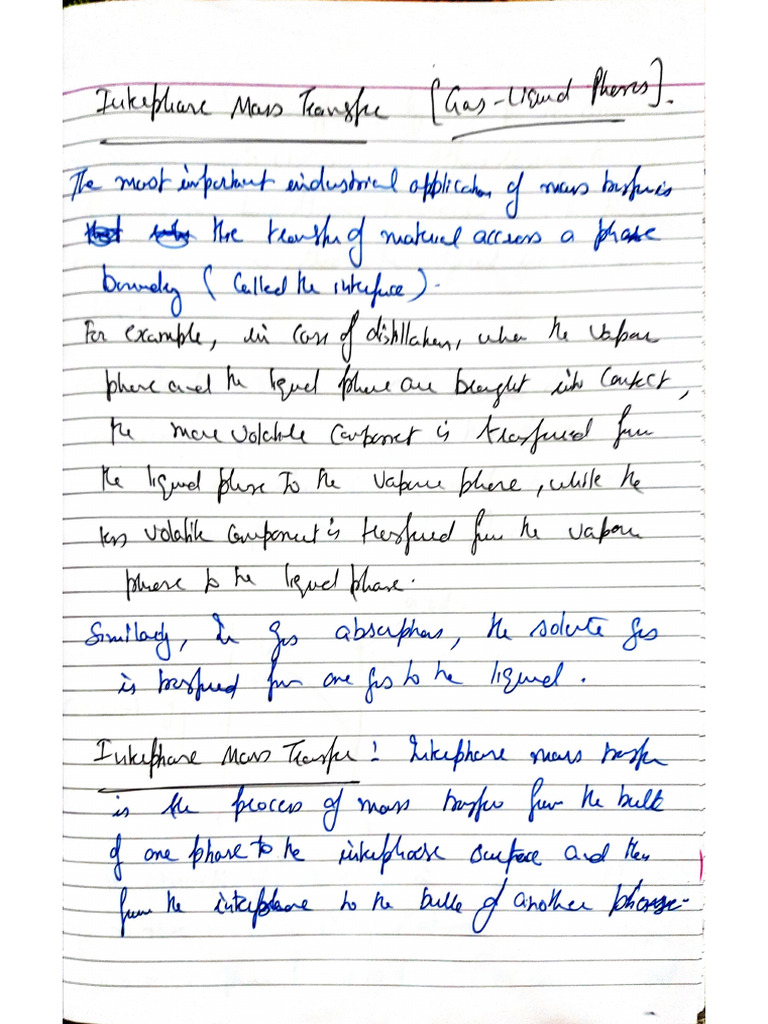 Interphase Mass Transfer [Gas-Liquid Phases].
The most important industrial application of mass transfer is
the transfer of material across a phase
boundary (called the interface).
For example, in case of distillation, when the vapour
phase and the liquid phase are brought into contact,
the more volatile component is transferred from
the liquid phase to the vapour phase, while the
less volatile component is transferred from the vapour
phase to the liquid phase.
Similarly, In gas absorption, the solute gas
is transferred from one gas to the liquid.
Interphase Mass Transfer: Interphase mass transfer
is the process of mass transfer from the bulk
of one phase to the interphase surface and then
from the interphase to the bulk of another phase.